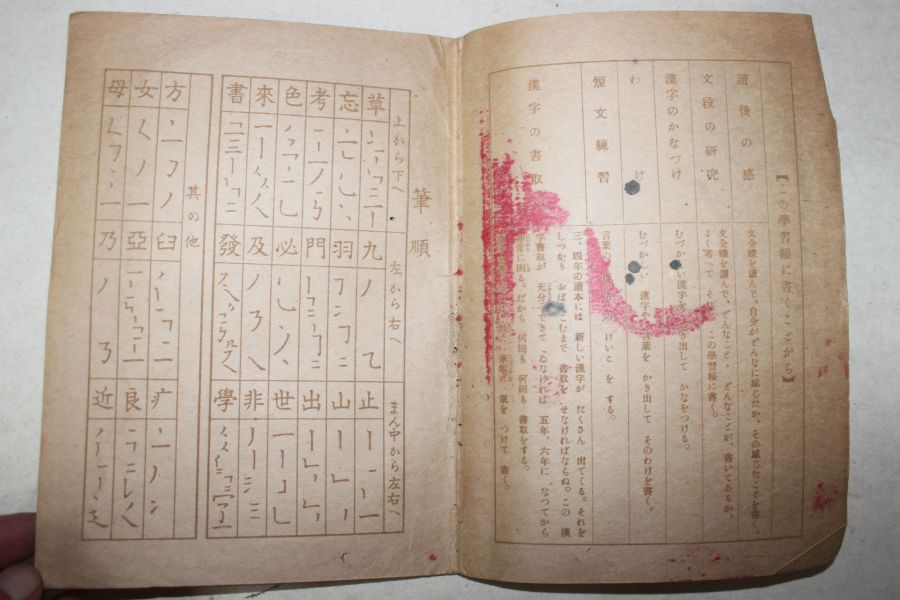 【この學習帳に書くことがら】
讀後の感
文全體を讀んで、自分がどんなに感じたか、その感じたことを書く。
文段の研究
文全體を讀んで、どんなこと、どんなことが、書いてあるか、
よく考へて それをこの學習帳に書く。
漢字のかなづけ
むづかしい漢字を 出して かなをつける。
わけ
むづかしい 漢字や 言葉を かき出して そのわけを書く。
短文練習
言葉の けいこ を する。
漢字の書取
三、四年の讀本には 新しい漢字が たくさん 出てくる。それを
しつかり おぼえこむまで 書取を せなければならぬ。この 漢
字書取が 充分 できて ゐなければ 五年、六年に なつてから
に困る。だから 何回も 何回も 書取をする。
筆順に 氣を つけて 書く。
筆順
上から下へ
草
忘
考
色
來
書
左から右へ
九
羽
門
必
及
發
まん中から左右へ
止
山
出
世
非
學
其の他
方
女
母
臼
亞
乃
疒
良
近